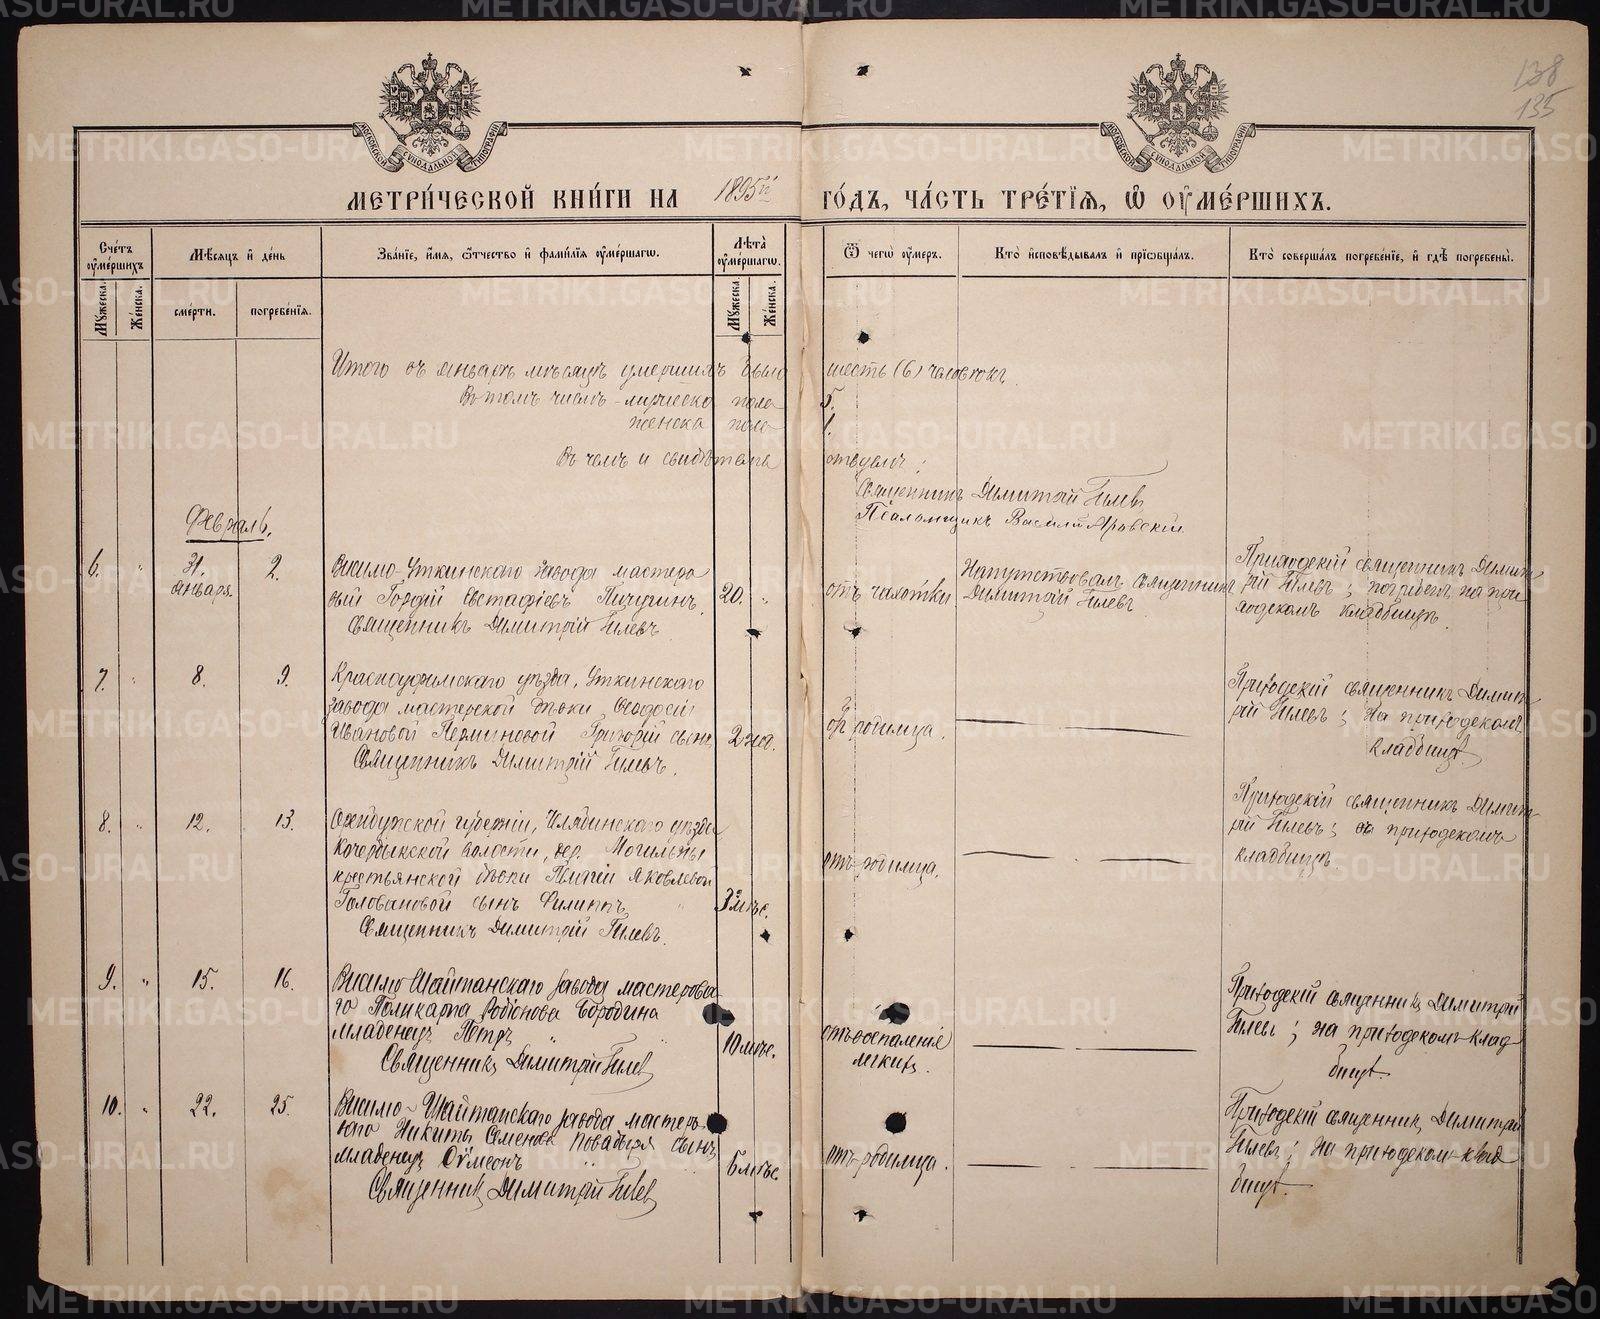 138
135
МЕТРИ́ЧЕСКОЙ КНИ́ГИ НА 1895й ГО́ДЪ, ЧА́СТЬ ТРЕ́ТІѦ, Ѡ ОУ҆МЕ́РШИХЪ.
Сче́тъ оу҆ме́ршихъ
Мѣ́сѧцъ и҆ де́нь
Зва́нїе, и҆́мѧ, ѻ҆́тчество и҆ фами́лїѧ оу҆ме́ршагѡ.
Лѣта̀ оу҆ме́ршагѡ.
Ѿ чегѡ̀ оу҆́меръ.
Кто̀ и҆сповѣ́дывалъ и҆ прїѡбща́лъ.
Кто̀ соверша́лъ погребе́нїе, и҆ гдѣ̀ погребены̀.
Мꙋ́жеска.
Же́нска.
сме́рти.
погребе́нїѧ.
Мꙋ́жеска.
Же́нска.
Итого въ январѣ мѣсяцѣ умершихъ было шесть (6) человѣкъ.
Въ томъ числѣ - мужеска пола 5.
женска пола 1.
Въ чемъ и свидѣтельствуемъ:
Священникъ Димитрій Гилевъ
Псаломщикъ Василій
Февраль.
6. " 31. января 2.
Висимо-Уткинскаго завода мастеро
вый Гордій Евстафіевъ Пичугинъ.
Священникъ Димитрій Гилевъ
20. "
отъ чахотки
Напутствовалъ Священникъ
Димитрій Гилевъ
Приходскій священникъ Димит
рій Гилевъ; погребенъ на при
ходскомъ кладбищѣ.
7. " 8. 9.
Красноуфимскаго уѣзда, Уткинскаго
завода мастерской дѣвки Ѳеодосіи
Ивановой Перминовой Григорій сынъ
Священникъ Димитрій Гилевъ.
2 нед.
отъ родимца.
Приходскій священникъ Димит
рій Гилевъ; на приходскомъ
кладбищѣ.
8. " 12. 13.
Оренбургской губерніи, Челябинскаго уѣзда
Кочердыкской волости, дер. Могильны
крестьянской дѣвки Яковлевой
Головановой сынъ Филиппъ "
Священникъ Димитрій Гилевъ.
3 мѣс.
отъ родимца.
Приходскій священникъ Димит
рій Гилевъ; на приходскомъ
кладбищѣ
9. " 15. 16.
Висимо-Шайтанскаго завода мастерова
го Поликарпа Родіонова Бородина
младенецъ Петръ "
Священникъ Димитрій Гилевъ
10 мѣс.
отъ воспаленія
легкихъ.
Приходскій священникъ Димитрій
Гилевъ; на приходскомъ клад
бищѣ.
10. " 22. 25.
Висимо-Шайтанскаго завода мастеро
ваго Никиты Семенова сынъ,
младенецъ Сѵмеонъ "
Священникъ Димитрій Гилевъ
6 мѣс.
отъ родимца.
Приходскій священникъ Димитрій
Гилевъ; на приходскомъ клад
бищѣ.
METRIKI.GASO-URAL.RU